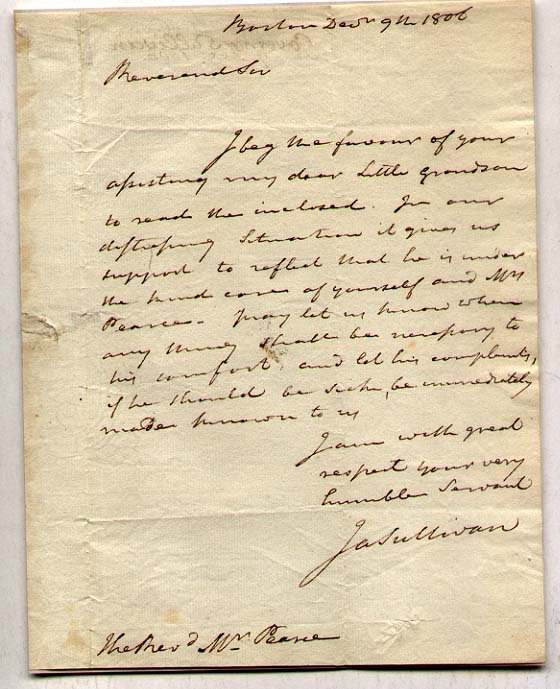 Boston Decr 9th 1806
Reverend Sir
I beg the favour of your
assisting my dear Little grandson
to read the inclosed. In our
distressing Situation it gives us
support to reflect that he is under
the kind care of yourself and Mrs
Pearce - pray let us know when
any thing shall be necessary to
his comfort and let his complaints,
if he should be sick, be immediately
made known to us
I am with great
respect your very
humble Servant
Ja Sullivan
The Revd Mr. Pearce